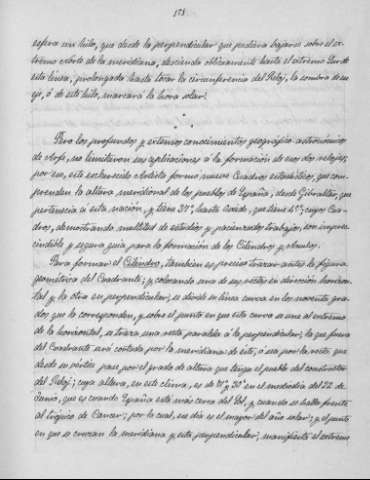 178.
esfera un hilo, que desde la perpendicular que pudiera bajarse sobre el ex-
tremo Norte de la meridiana, descienda oblicuamente hasta el extremo Sur de
esta línea, prolongada hasta tocar la circunferencia del Reloj, la sombra de su
eje, ó de este hilo, marcará la hora solar.
Pero los profundos y extensos conocimientos geográfico astronómicos
de Arfe, no limitaron sus aplicaciones á la formación de esos dos relojes;
por eso, este esclarecido Artista formó nueve Cuadros estadísticos, que com-
prenden la altura meridional de los pueblos de España, desde Gibraltar, que
pertenecía á esta nación, y tiene 37°, hasta Oviedo, que tiene 41°; cuyos Cua-
dros, demostrando multitud de estudios y pacienzudo trabajo, son impres-
cindible y segura guía para la formación de los Cilindros y Anulos.
Para formar el Cilindro, también es preciso trazar antes la figura
geométrica del Cuadrante; y colocando una de sus rectas en dirección horizon-
tal y la otra en perpendicular, se divide su línea curva en los noventa gra-
dos que la corresponden, y sobre el punto en que esta curva se une al extremo
de la horizontal, se traza una recta paralela á la perpendicular; la que fuera
del Cuadrante será cortada por la meridiana de éste, ó sea por la recta que
desde su vértice pase por el grado de altura que tenga el pueblo del constructor
del Reloj; cuya altura, en este clima, es de 71° y 30' en el mediodía del 22 de
Junio, que es cuando España está más cerca del Sol, y cuando se halla frente
al trópico de Cancer; por lo cual, ese día es el mayor del año solar; y el punto
en que se cruzan la meridiana y esta perpendicular, manifiesta el extremo